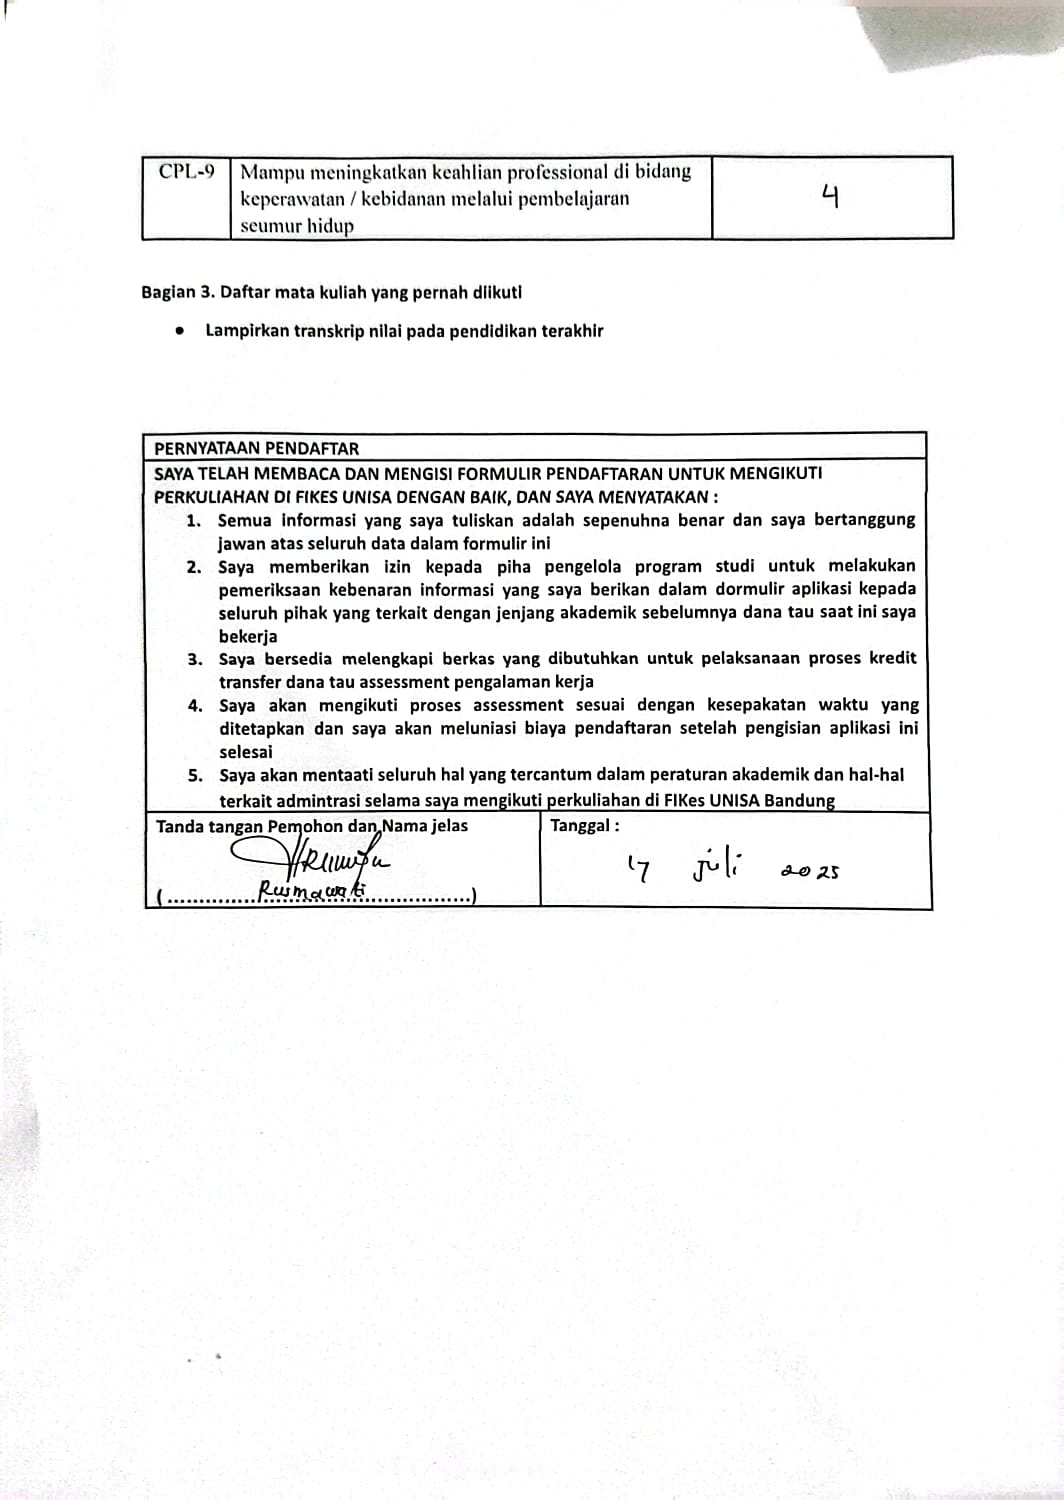 CPL-9 Mampu meningkatkan keahlian professional di bidang
keperawatan / kebidanan melalui pembelajaran
seumur hidup
4
Bagian 3. Daftar mata kuliah yang pernah diikuti
• Lampirkan transkrip nilai pada pendidikan terakhir
PERNYATAAN PENDAFTAR
SAYA TELAH MEMBACA DAN MENGISI FORMULIR PENDAFTARAN UNTUK MENGIKUTI
PERKULIAHAN DI FIKES UNISA DENGAN BAIK, DAN SAYA MENYATAKAN :
1. Semua informasi yang saya tuliskan adalah sepenuhna benar dan saya bertanggung
jawan atas seluruh data dalam formulir ini
2. Saya memberikan izin kepada piha pengelola program studi untuk melakukan
pemeriksaan kebenaran informasi yang saya berikan dalam dormulir aplikasi kepada
seluruh pihak yang terkait dengan jenjang akademik sebelumnya dana tau saat ini saya
bekerja
3. Saya bersedia melengkapi berkas yang dibutuhkan untuk pelaksanaan proses kredit
transfer dana tau assessment pengalaman kerja
4. Saya akan mengikuti proses assessment sesuai dengan kesepakatan waktu yang
ditetapkan dan saya akan meluniasi biaya pendaftaran setelah pengisian aplikasi ini
selesai
5. Saya akan mentaati seluruh hal yang tercantum dalam peraturan akademik dan hal-hal
terkait admintrasi selama saya mengikuti perkuliahan di FIKes UNISA Bandung
Tanda tangan Pemohon dan Nama jelas
(Rusmawati)
Tanggal :
17 juli 2025